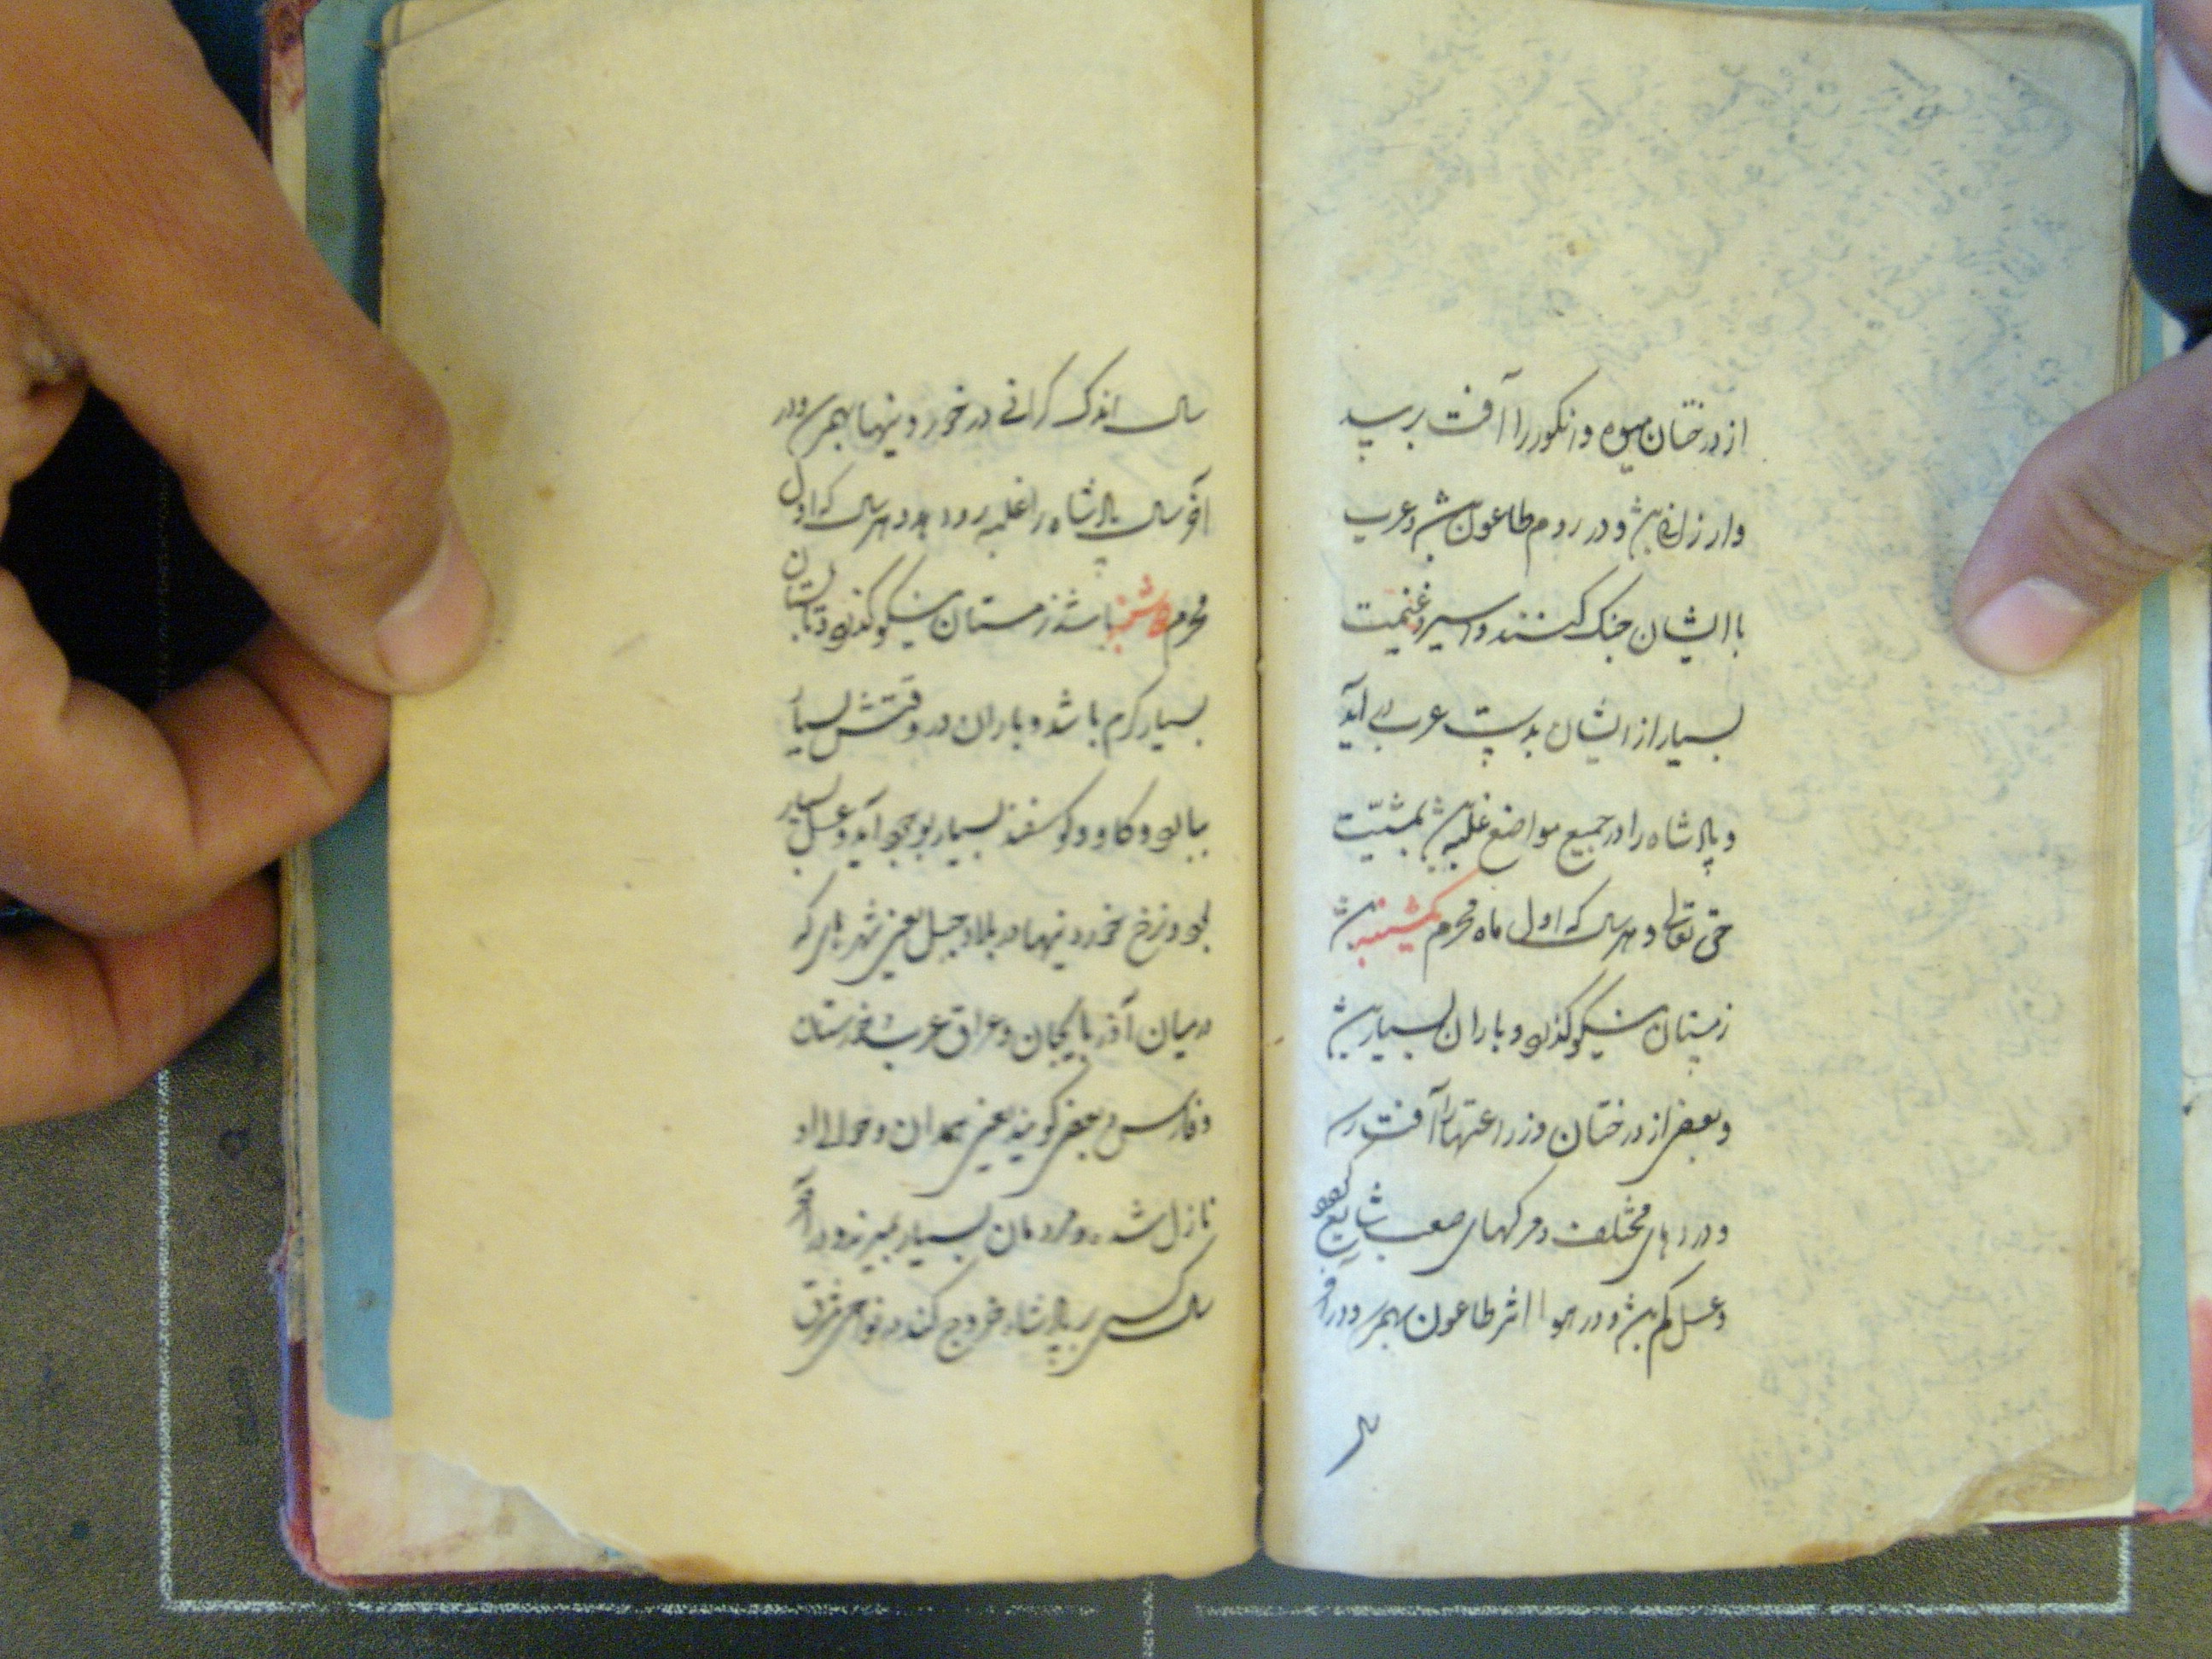 از درختان میوه و انگور را آفت برسد
و ارزانی باشد و در روم طاعون باشد و عرب
با ایشان جنک کنند و اسیر و غنیمت
بسیار از ایشان بدست عرب در آید
و پادشاه را در جمیع مواضع غلبه باشد بمشیّت
حق تعالی و هر سال که اول ماه محرم یکشنبه باشد
زمستان نیکو گذرد و باران بسیار باشد
و بعضی از درختان و زراعتها را آفت رسد
و دردهای مختلف و مرکهای صعب شایع کردد
و عسل کم باشد و در هوا اثر طاعون بهمرسد و در آخر
سال
سال اندک کرانی در خوردنیها بهمرسد و در
آخر سال پادشاه را غلبه رو دهد و هر سال که اول
محرم دوشنبه باشد زمستان نیکو گذرد و تابستان
بسیار کرم باشد و باران در وقتش بسیار
ببارد و کاو و کوسفند بسیار بوجود آید و عسل بسیار
بود و نرخ خوردنیها در بلاد جبل یعنی شهرهای که
درمیان آذربایجان و عراق عرب و خوزستان
و فارس و بعضی کویند یعنی همدان و حوالی او
نازل شده و مردمان بسیار بمیرند و در آخر
سال کسی بر پادشاه خروج کند در نواحی مشرق